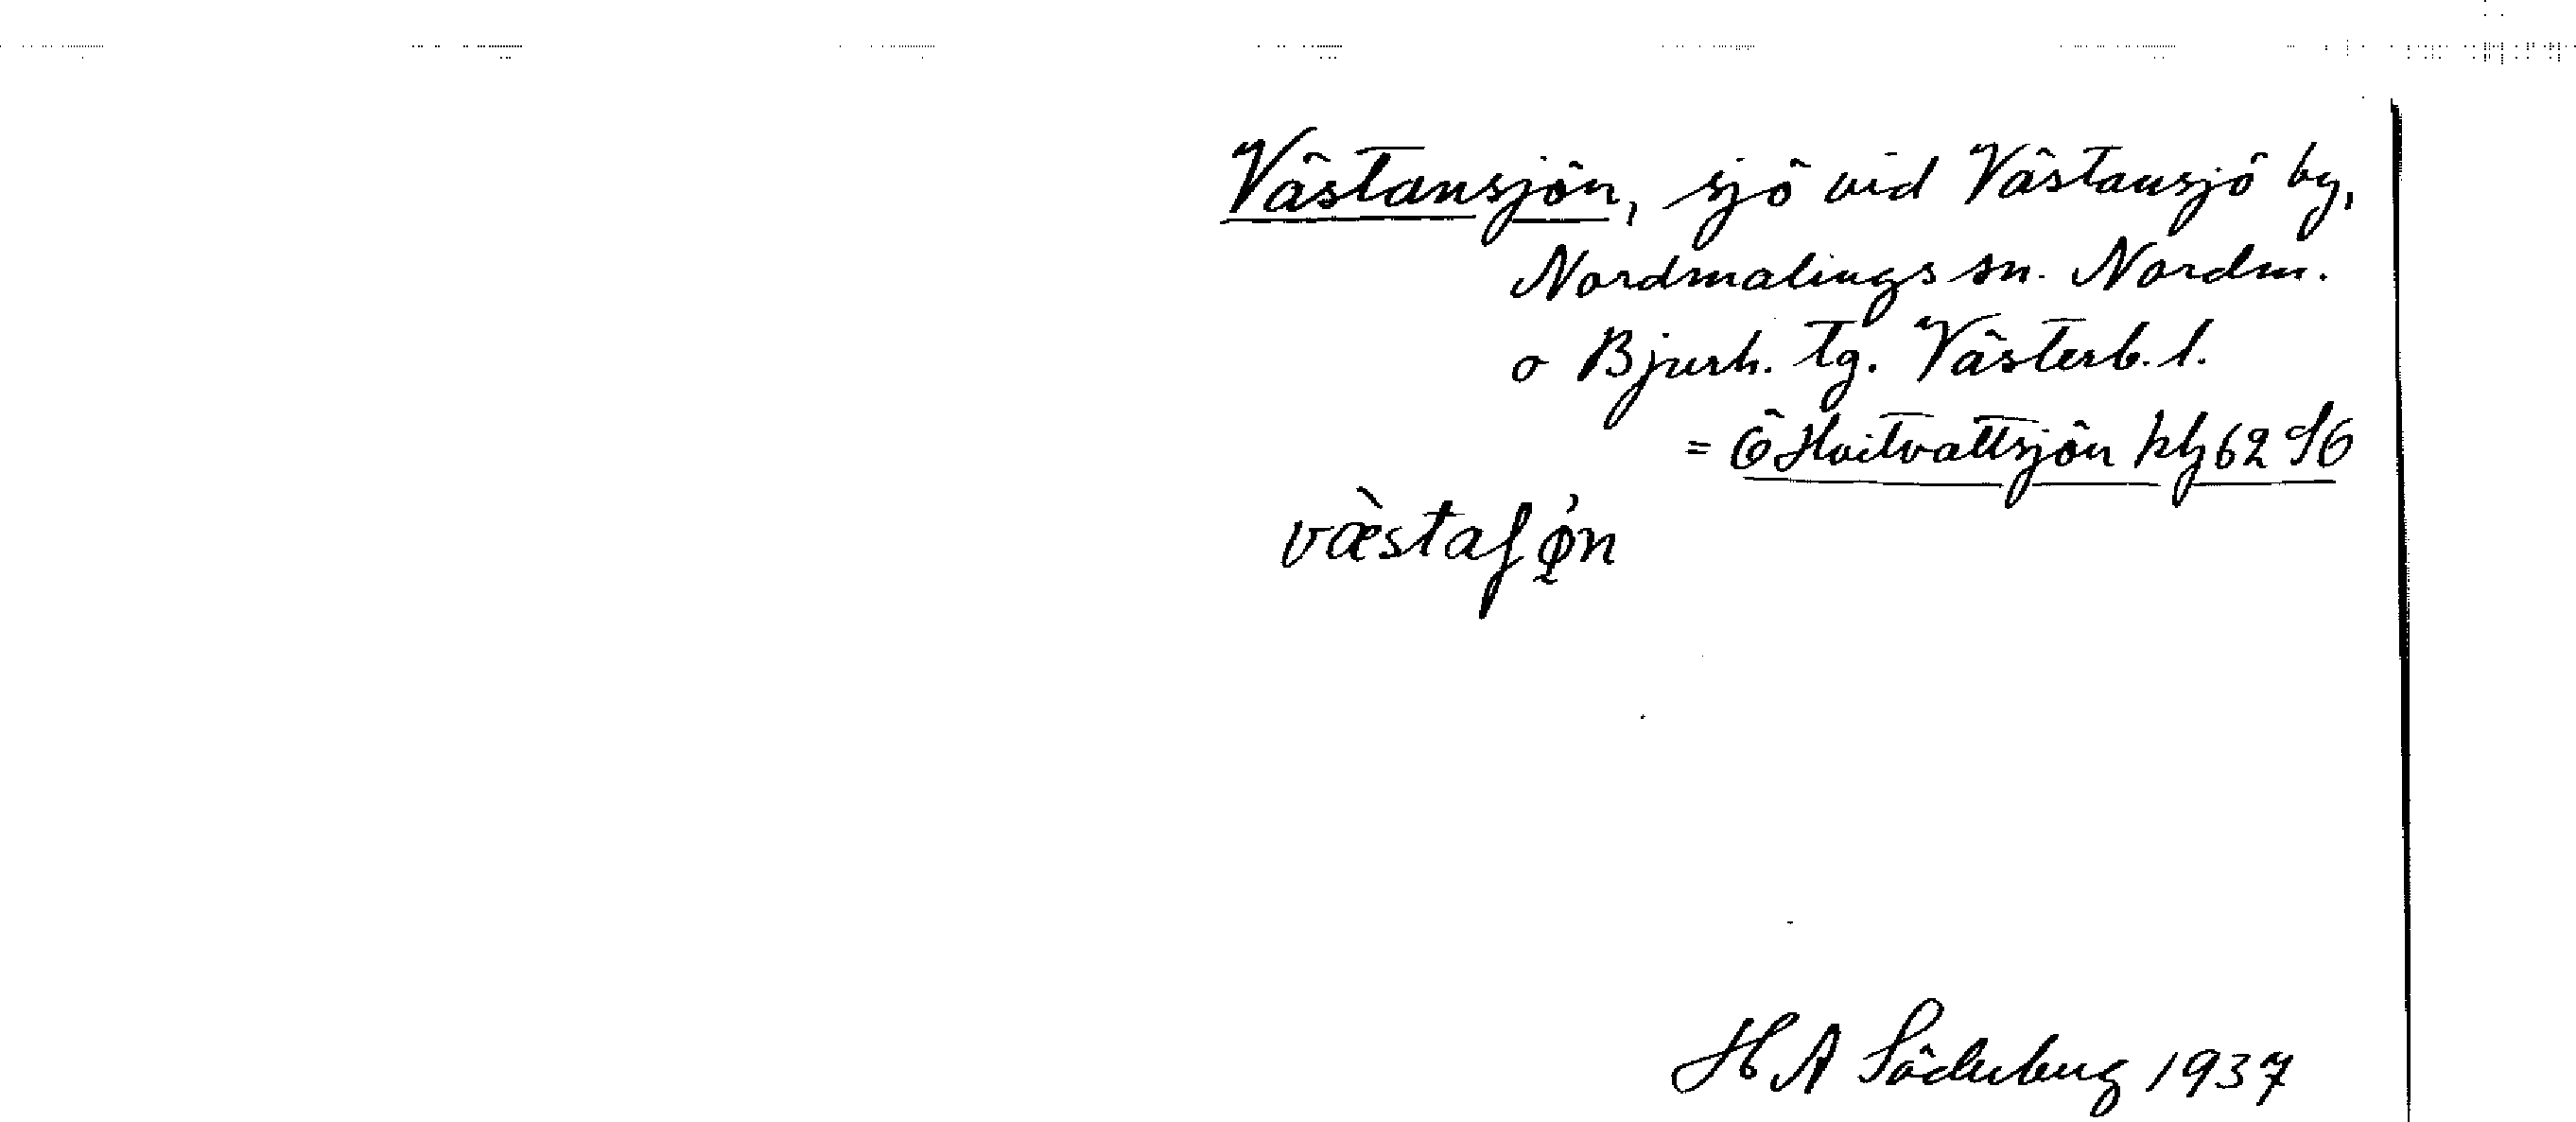 Västansjön, sjö vid Västansjö by,
Nordmalings sn. Nordm.
o Bjurh. tg. Västerb. l.
= Ö Hvitvattsjön
væ̀staʃø̨n
H A Söderberg 1937